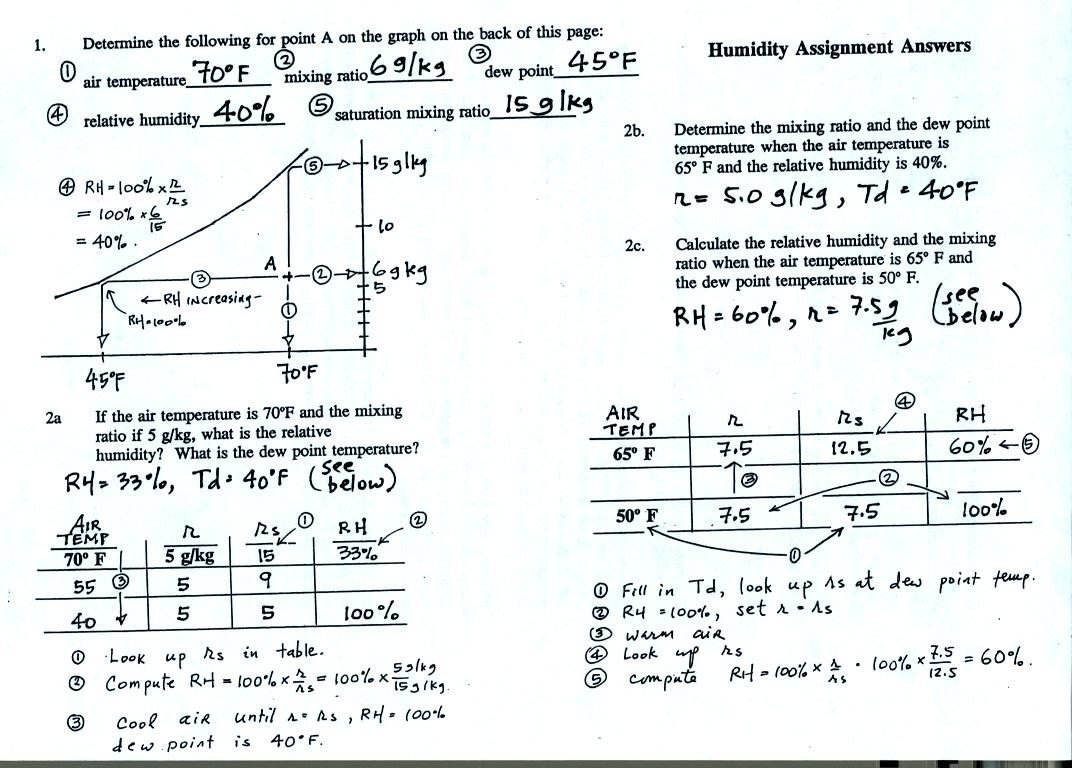 1. Determine the following for point A on the graph on the back of this page:
① air temperature 70°F ② mixing ratio 6 g/kg ③ dew point 45°F
④ relative humidity 40% ⑤ saturation mixing ratio 15 g/kg
⑤ 15 g/kg
④ RH = 100% x r/rs
= 100% x 6/15
= 40%.
10
A ② 6 g kg
③
5
← RH increasing -
RH=100%
①
45°F 70°F
2a If the air temperature is 70°F and the mixing
ratio if 5 g/kg, what is the relative
humidity? What is the dew point temperature?
RH = 33%, Td = 40°F (see below)
AIR TEMP r rs ① RH ②
70° F 5 g/kg 15 33%
55 ③ 5 9
40 5 5 100%
① Look up rs in table.
② Compute RH = 100% x r/rs = 100% x 5g/kg / 15g/kg.
③ Cool air until r = rs, RH = 100%
dew point is 40°F.
Humidity Assignment Answers
2b. Determine the mixing ratio and the dew point
temperature when the air temperature is
65° F and the relative humidity is 40%.
r = 5.0 g/kg, Td = 40°F
2c. Calculate the relative humidity and the mixing
ratio when the air temperature is 65° F and
the dew point temperature is 50° F.
RH = 60%, r = 7.5 g/kg (see below)
AIR TEMP r rs ④ RH
65° F 7.5 12.5 60% ← ⑤
③ ②
50° F 7.5 7.5 100%
①
① Fill in Td, look up rs at dew point temp.
② RH = 100%, set r = rs
③ warm air
④ Look up rs
⑤ compute RH = 100% x r/rs = 100% x 7.5/12.5 = 60%.